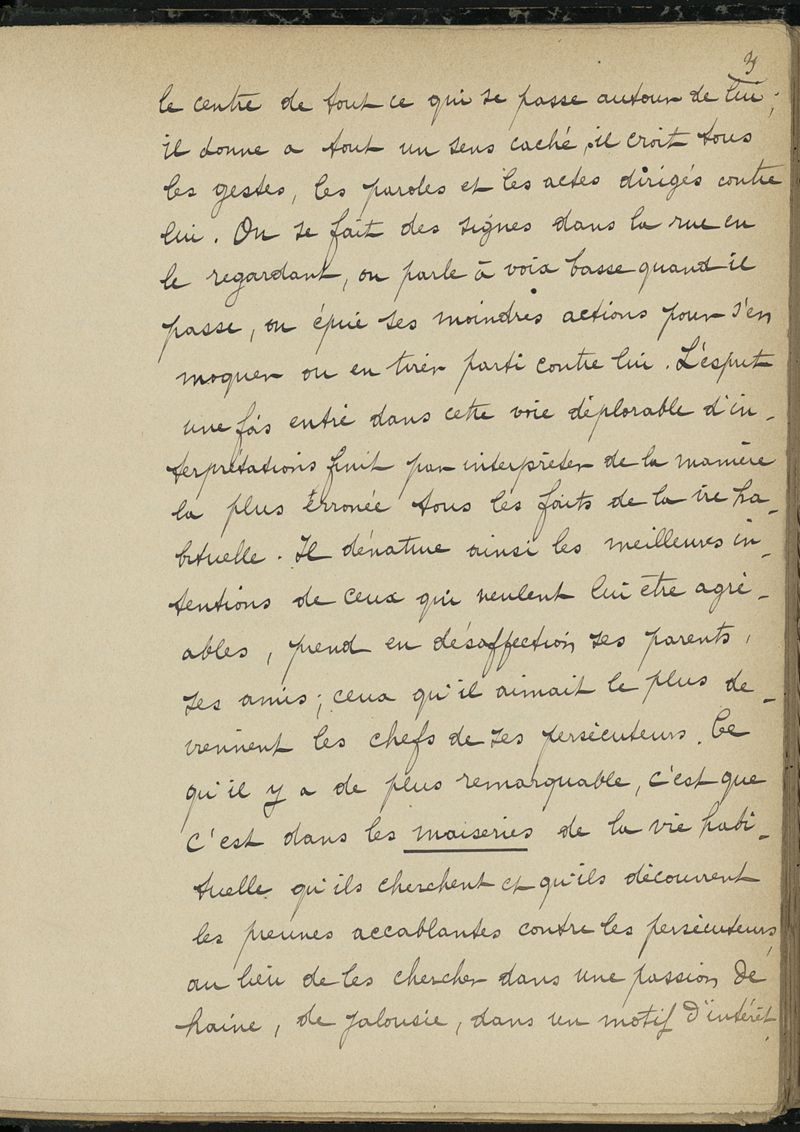 3
le centre de tout ce qui se passe autour de lui;
il donne a tout un sens caché, il croit tous
les gestes, les paroles et les actes dirigés contre
lui. On se fait des signes dans la rue en
le regardant, on parle à voix basse quand il
passe, on épie ses moindres actions pour s'en
moquer ou en tirer parti contre lui. L'esprit
une fois entré dans cette voie déplorable d'in-
terprétations finit par interpréter de la manière
la plus erronée tous les faits de la vie ha-
bituelle. Il dénature ainsi les meilleures in-
tentions de ceux qui veulent lui etre agré-
ables, prend en désaffection ses parents,
ses amis; ceux qu'il aimait le plus de-
viennent les chefs de ses persécuteurs. Ce
qu'il y a de plus remarquable, c'est que
c'est dans les niaiseries de la vie habi-
tuelle qu'ils cherchent et qu'ils découvrent
les preuves accablantes contre les persécuteurs,
au lieu de les chercher dans une passion de
haine, de jalousie, dans un motif d'intérêt,